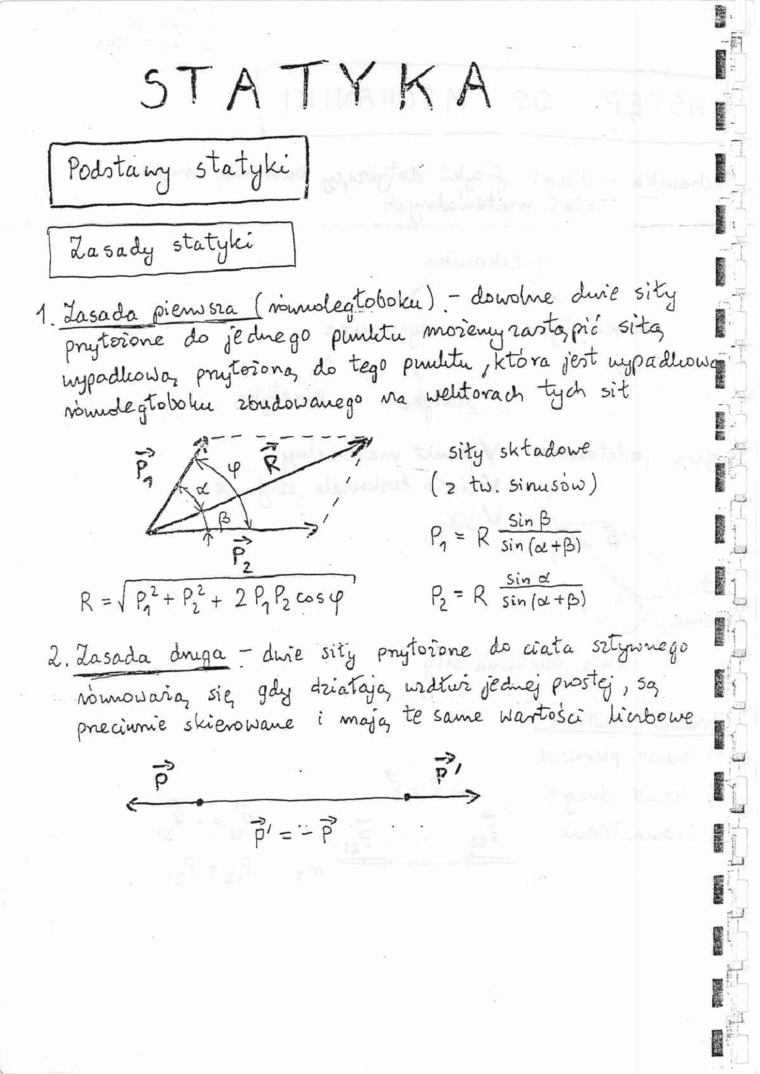 STATYKA
Podstawy statyki
Zasady statyki
1. Zasada pierwsza (równoległoboku) - dowolne dwie siły
przyłożone do jednego punktu możemy zastąpić siłą
wypadkową przyłożoną do tego punktu, która jest wypadkową
równoległoboku zbudowanego na wektorach tych sił
P₁ α φ R β P₂
siły składowe
(z tw. sinusów)
P₁ = R sin β / sin (α+β)
R = √(P₁² + P₂² + 2 P₁ P₂ cos φ)
P₂ = R sin α / sin (α+β)
2. Zasada druga - dwie siły przyłożone do ciała sztywnego
równoważą się gdy działają wzdłuż jednej prostej, są
przeciwnie skierowane i mają te same wartości liczbowe
P P'
P' = - P